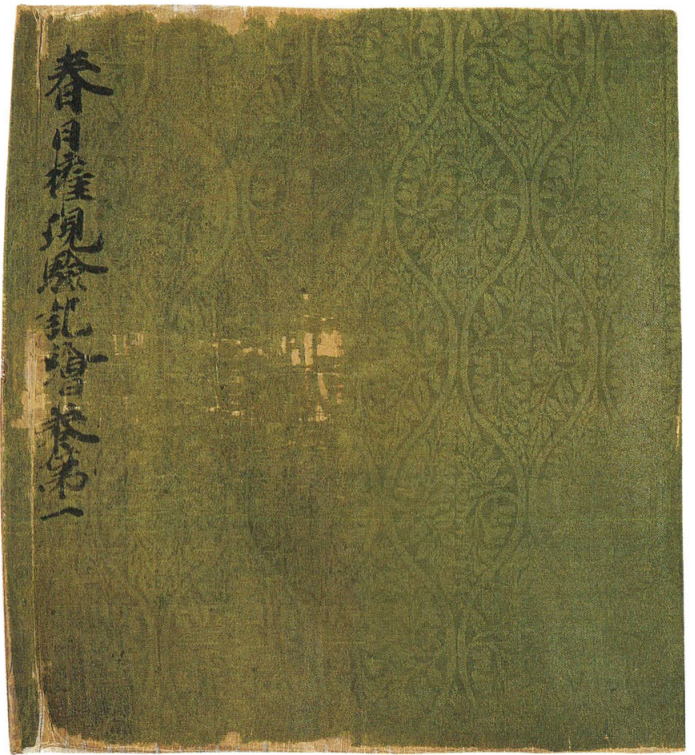 春日権現験記繪巻第一